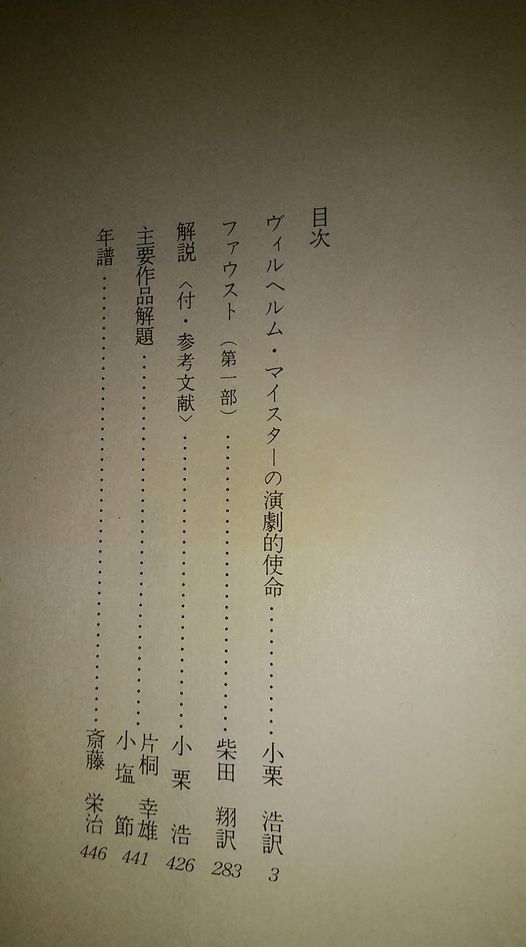 目次
ヴィルヘルム・マイスターの演劇的使命……………小栗 浩訳 3
ファウスト（第一部）……………………………柴田 翔訳 283
解説〈付・参考文献〉……………………………小栗 浩 426
主要作品解題……………………………………片桐 幸雄
小塩 節 441
年譜………………………………………………斎藤 栄治 446